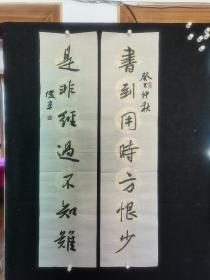 書到用時方恨少
癸巳仲秋
是非經過不知難